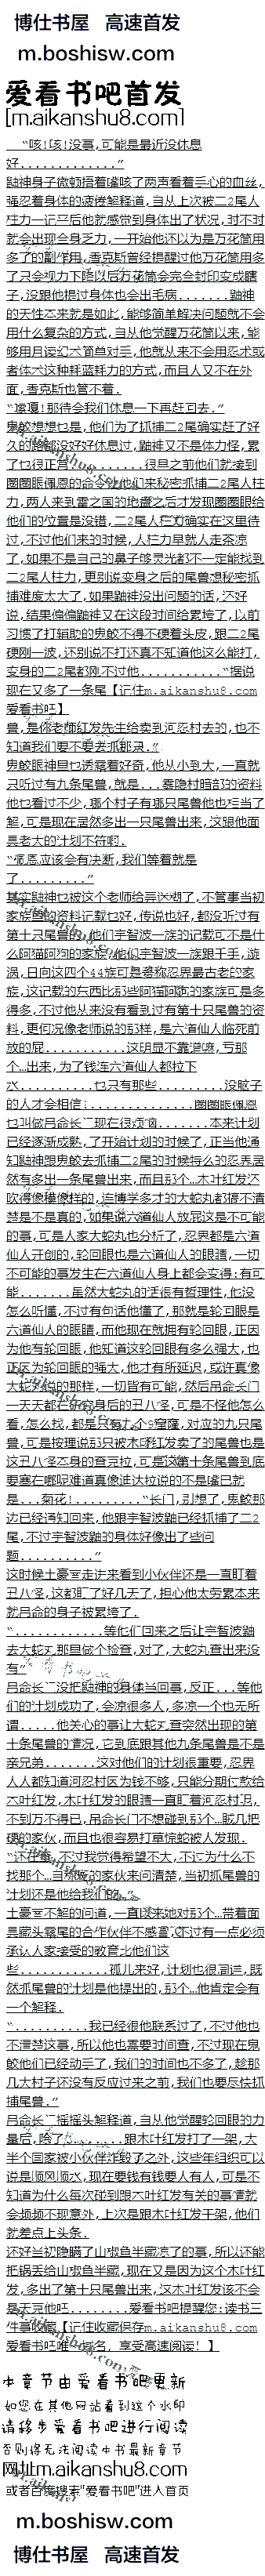 博仕书屋 高速首发
m.boshisw.com
爱看书吧首发
[m.aikanshu8.com]
“咳!咳!没事,可能是最近没休息
好.............”
鼬神身子微顿捂着嘴咳了两声看着手心的血丝,
强忍着身体的疲惫解释道,自从上次被二2尾人
柱力一记平后他就感觉到身体出了状况,时不时
就会出现全身乏力,一开始他还以为是万花筒用
多了的副作用,香克斯曾经提醒过他万花筒用多
了只会视力下降以后万花筒会完全封印变成瞎
子,没跟他提过身体也会出毛病.......鼬神
的天性本来就是如此,能够简单解决问题就不会
用什么复杂的方式,当从他觉醒万花筒以来,能
够用月读幻术简单对手,他就从来不会用忍术或
者体术这种耗蓝耗力的方式,而且人又不在外
面,香克斯也管不着.
鬼鲛想想也是,他们为了抓捕二2尾确实赶了好
久的路都没好好休息过,鼬神又不是体力怪,累
了也很正常...........很早之前他们就接到
圈圈眼佩恩的命令让他们来秘密抓捕二2尾人柱
力,两人来到雷之国的地盘之后才发现圈圈眼给
他们的位置是没错,二2尾人柱力确实在这里待
过,不过他们来的时候,人柱力早就人走茶凉
了,如果不是自己的鼻子够灵光都不一定能找到
二2尾人柱力,更别说变身之后的尾兽想秘密抓
捕难度太大了,如果鼬神没出问题的话,还好
说,结果偏偏鼬神又在这段时间给累垮了,以前
习惯了打辅助的鬼鲛不得不硬着头皮,跟二2尾
硬刚一波,还别说不打还真不知道他这么能打,
变身的二2尾都刚不过他..........“据说
现在又多了一条尾【记住m.aikanshu8.com
爱看书吧】
兽,是佩老师红发先生给卖到河忍村去的,也不
知道我们要不要去抓那只.”
鬼鲛眼神里也透露着好奇,他从小到大,一直就
只听过有九条尾兽,就是...雾隐村暗部的资料
他也看过不少,哪个村子有哪只尾兽他也相当了
解,可是现在居然多出一只尾兽出来,这跟他面
具老大的计划不符啊.
“佩恩应该会有决断,我们等着就是
了.........”
其实鼬神也被这个老师给弄迷糊了,不管事当初
家族里的资料记载也好,传说也好,都没听过有
第十只尾兽的,他们宇智波一族的记载可不是什
么阿猫阿狗的家族,他们宇智波一族跟千手,漩
涡,日向这四个44族可是号称忍界最古老的家
族,这记载的东西比那些阿猫阿狗的家族可是多
得多,不过他从来没有看到过有第十只尾兽的资
料,更何况像老师说的那样,是六道仙人临死前
放的屁...........这明显不靠谱嘛,亏那
个…出来,为了钱连六道仙人都拉下
水..........也只有那些.........没脑子
的人才会相信...............圈圈眼佩恩
也叫做吕命长门现在很烦恼.......本来计划
已经逐渐成熟,了开始计划的时候了,正当他通
知鼬神跟鬼鲛去抓捕二2尾的时候特么的忍界居
然有多出一条尾兽出来,而且那个…木叶红发还
吹得像模像样的,连博学多才的大蛇丸都搞不清
楚是不是真的,如果说六道仙人放屁这是不可能
的事,可是人家大蛇丸也分析了,忍界都是六道
仙人开创的,轮回眼也是六道仙人的眼睛,一切
不可能的事发生在六道仙人身上都会变得:有可
能.......虽然大蛇丸的话很有哲理性,他没
怎么听懂,不过有句话他懂了,那就是轮回眼是
六道仙人的眼睛,而他现在就拥有轮回眼,正因
为他有轮回眼,他知道这轮回眼有多么强大,也
正因为轮回眼的强大,他才有所延迟,或许真像
大蛇丸说的那样,一切皆有可能,然后吕命长门
一天天都在盯着身后的丑八怪,可是不怪他怎么
看,怎么找,都是只有九个9窟窿,对应的九只尾
兽,可是按理说那只被木叶红发卖了的尾兽也是
这丑八怪本身的查克拉,可是这第十条尾兽到底
要塞在哪呢难道真像迪达拉说的不是嘴巴就
是...菊花!.........“长门,别想了,鬼鲛那
边已经通知回来,他跟宇智波鼬已经抓捕了二2
尾,不过宇智波鼬的身体好像出了些问
题..........”
这时候土豪蛮走进来看到小伙伴还是一直盯着
丑八怪,这都盯了好几天了,担心他太劳累本来
就吕命的身子被累垮了.
“............等他们回来之后让宇智波鼬
去大蛇丸那里做个检查,对了,大蛇丸查出来没
有”
吕命长门没把鼬神的身体当回事,反正...等他
们的计划成功了,会凉很多人,多凉一个也无所
谓.....他关心的事让大蛇丸查突然出现的第
十条尾兽的情况,它到底跟其他九条尾兽是不是
亲兄弟.......这对他们的计划很重要,忍界
人人都知道河忍村因为钱不够,只能分期付款给
木叶红发,木叶红发的眼睛一直盯着河忍村呢,
不到万不得已,吕命长门不想碰到那个…贱几把
硬的家伙,而且也很容易打草惊蛇被人发现.
“还在查,不过我觉得希望不大,不过为什么不
找那个…当初的家伙来问清楚,当初抓尾兽的
计划还是他给我们的.”
土豪蛮不解的问道,一直以来她对那个…带着面
具藏头露尾的合作伙伴不感冒,不过有一点必须
承认人家接受的教育比他们这
些............孤儿来好,计划也很周详,既
然抓尾兽的计划是他提出的,那个…他肯定会有
一个解释.
“..........我已经很他联系过了,不过他也
不清楚这事,所以他也需要时间查,不过现在鬼
鲛他们已经动手了,我们的时间也不多了,趁那
几大村子还没有反应过来之前,我们也要尽快抓
捕尾兽.”
吕命长门摇摇头解释道,当从他觉醒轮回眼的力
量后,除了.........跟木叶红发打了一架,大
半个国家被小伙伴炸毁了之外,这些年组织可以
说是顺风顺水,现在要钱有钱要人有人,可是不
知道为什么每次碰到跟木叶红发有关的事情就
会频频不现意外,上次是跟木叶红发干架,他们
就差点上头条.
还好当初隐瞒了山椒鱼半藏凉了的事,所以还能
把锅丢给山椒鱼半藏,现在又是因为这个木叶红
发,多出了第十只尾兽出来,这木叶红发该不会
是天克他吧.......爱看书吧提醒您:读书三
件事收藏【记住收藏保存m.aikanshu8.com
爱看书吧唯一域名, 享受高速阅读! 】
本章节由爱看书吧更新
如您在其他网站看到这个水印
请移步爱看书吧进行阅读
否则将无法阅读本书最新章节
网址m.aikanshu8.com
或者百度搜索“爱看书吧”进入首页
m.boshisw.com
博仕书屋 高速首发